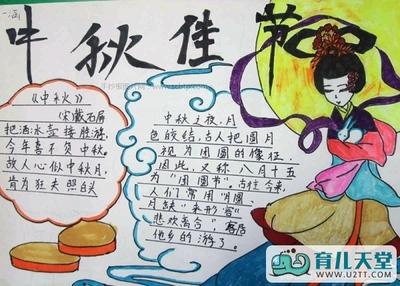 中秋佳节
《中秋》
宋 戴石屏
把酒冰壶接胜游
今年喜不负中秋。
故人心似中秋月，
肯为狂夫照白头
中秋之夜，月
色皎洁，古人把圆月
视为团圆的像征，
因此，又称八月十五
为“团圆节”。古往今来，
人们常用“月圆、
月缺”来形容“
悲欢离合”，客居
他乡的游子。
育儿天堂
www.U2TT.com